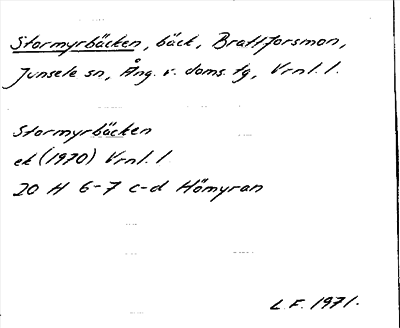 Stormyrbäcken, bäck, Brattforsmon,
Junsele sn, Ång. v. doms. tg, Vrnl. l.
Stormyrbäcken
ek (1970) Vrnl. l.
20 H 6-7 c-d Hömyran
L.F. 1971.